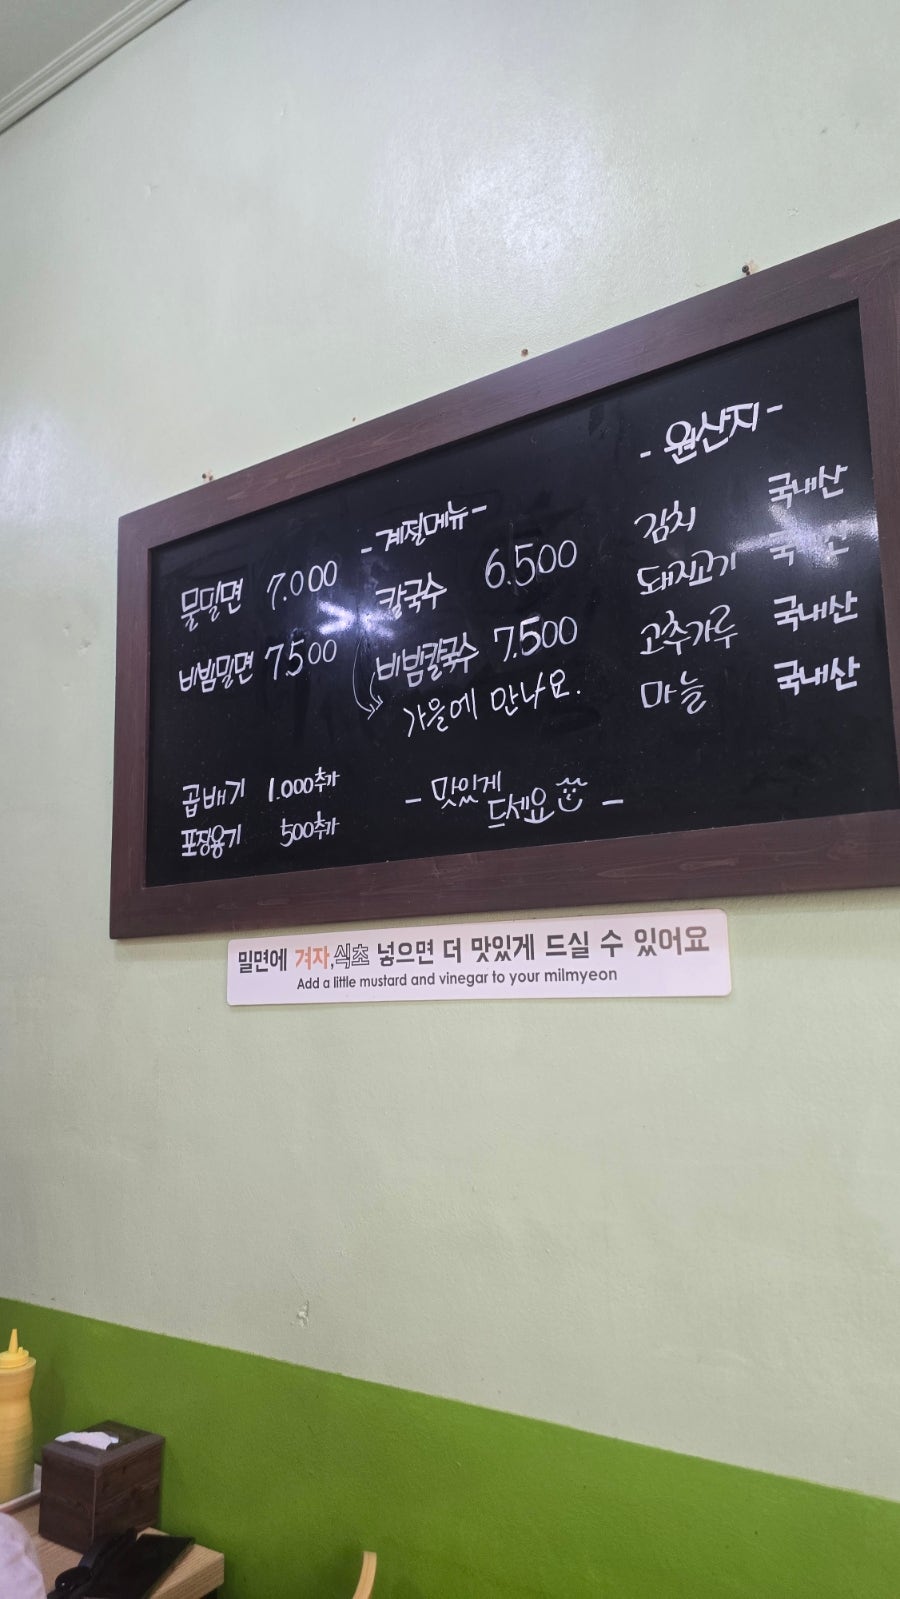 물밀면 7.000
비빔밀면 7.500
곱배기 1.000추가
포장용기 500추가
- 계절메뉴 -
칼국수 6.500
비빔칼국수 7.500
가을에 만나요.
- 맛있게
드세요 -
- 원산지 -
김치 국내산
돼지고기 국내산
고추가루 국내산
마늘 국내산
밀면에 겨자,식초 넣으면 더 맛있게 드실 수 있어요
Add a little mustard and vinegar to your milmyeon